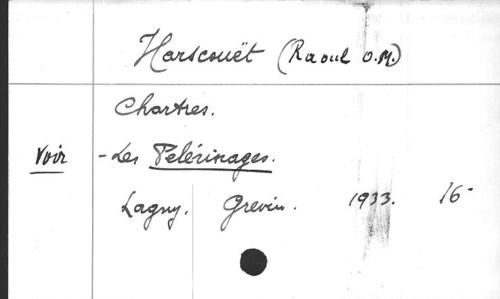 Harscouët (Raoul O.M.)
Chartres.
Voir - Les Pelérinages.
Lagny. Grevin. 1933. 16-